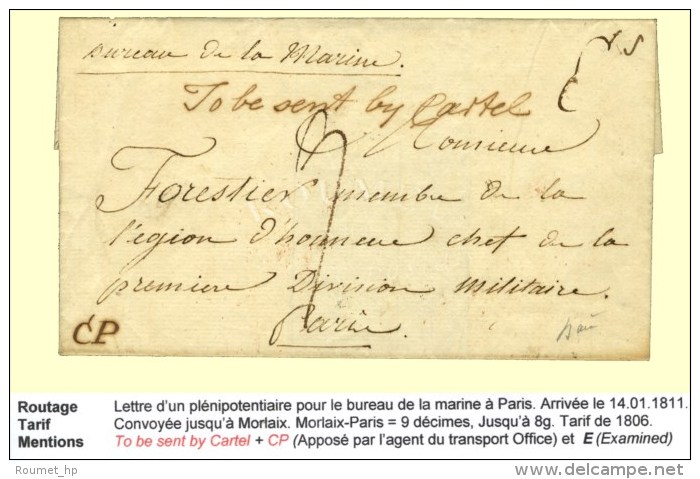 Bureau de la Marine.
To be sent by Cartel
A Monsieur
Forestier membre de la
légion d'honneur chef de la
premiere Division Militaire.
Paris.
CP
Routage Lettre d'un plénipotentiaire pour le bureau de la marine à Paris. Arrivée le 14.01.1811.
Tarif Convoyée jusqu'à Morlaix. Morlaix-Paris = 9 décimes, Jusqu'à 8g. Tarif de 1806.
Mentions To be sent by Cartel + CP (Apposé par l'agent du transport Office) et E (Examined)
Roumet_hp
©delcampe.net